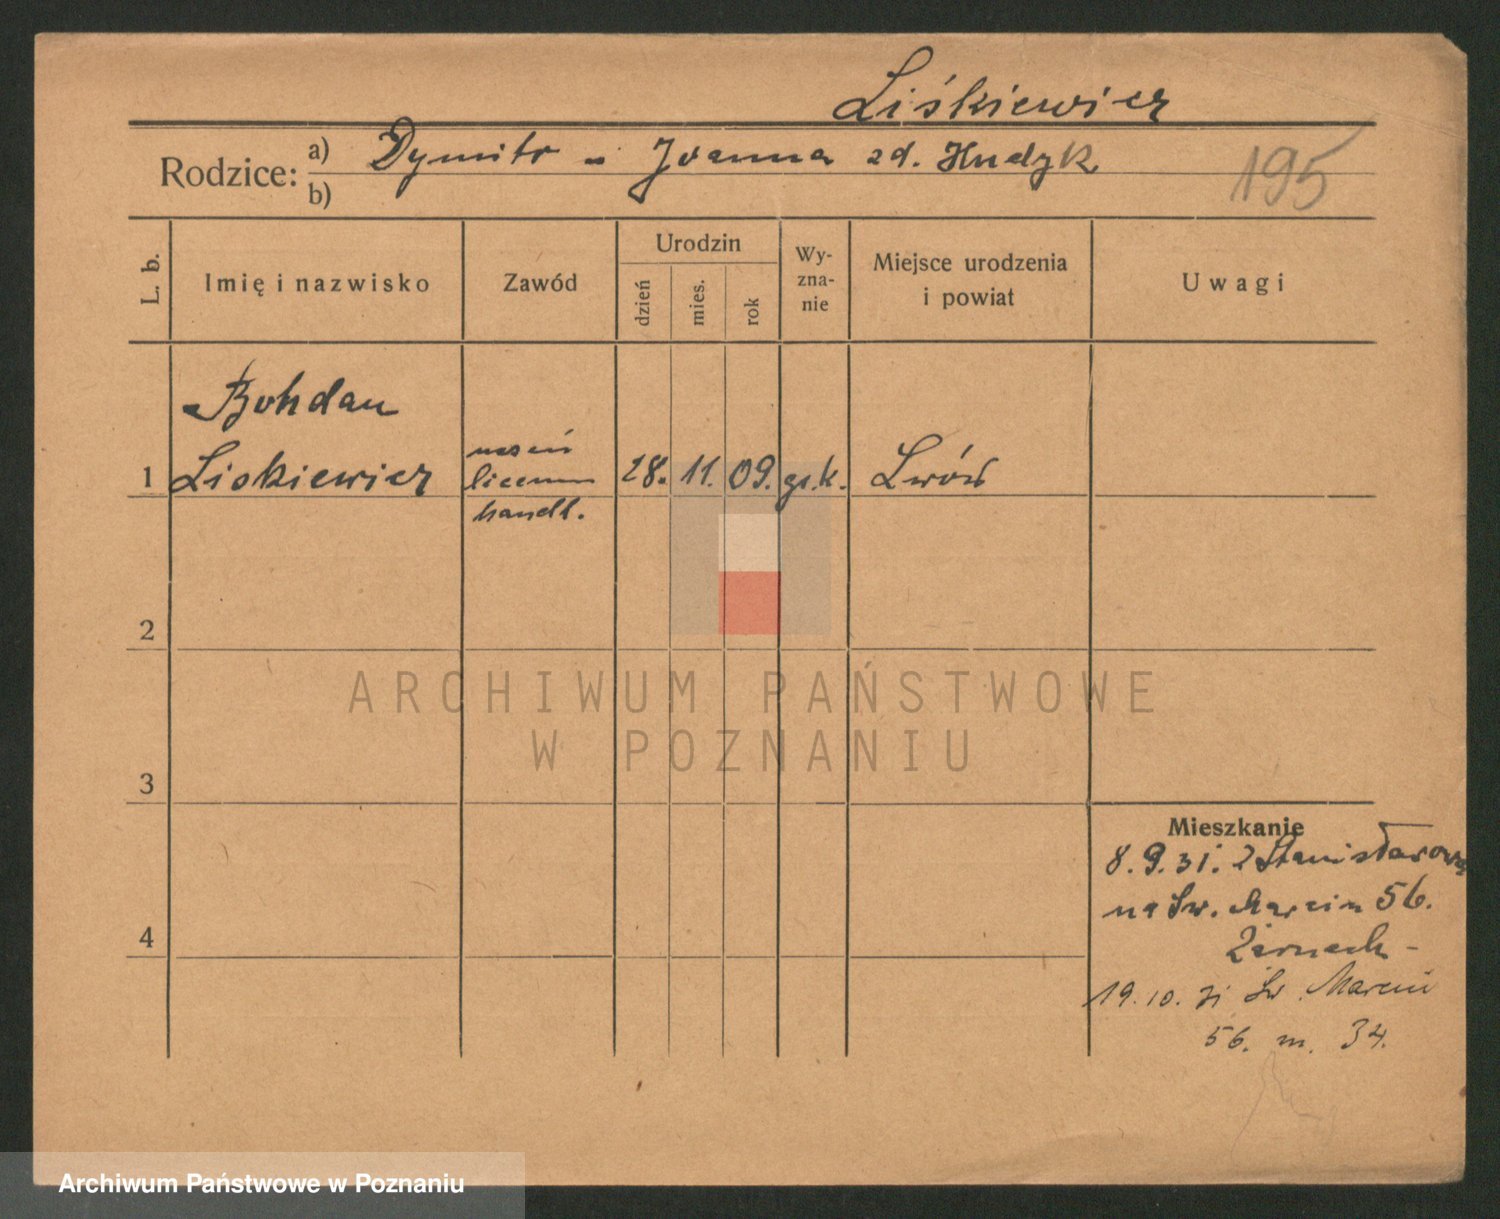 Liśkiewicz
Rodzice: a) Dymitr - Joanna zd. Hudyk
b)
195
L. b.
Imię i nazwisko
Zawód
Urodzin
dzień
mies.
rok
Wy-
zna-
nie
Miejsce urodzenia
i powiat
Uwagi
Bohdan
1 Liskiewicz
uczeń
liceum
handl.
28. 11. 09. gr.k. Lwów
2
3
4
ARCHIWUM PAŃSTWOWE
W POZNANIU
Mieszkanie
8.9.31. z Stanisławowa
na Św. Marcin 56.
19.10. 31 Św. Marcin
56. m. 34.
Archiwum Państwowe w Poznaniu